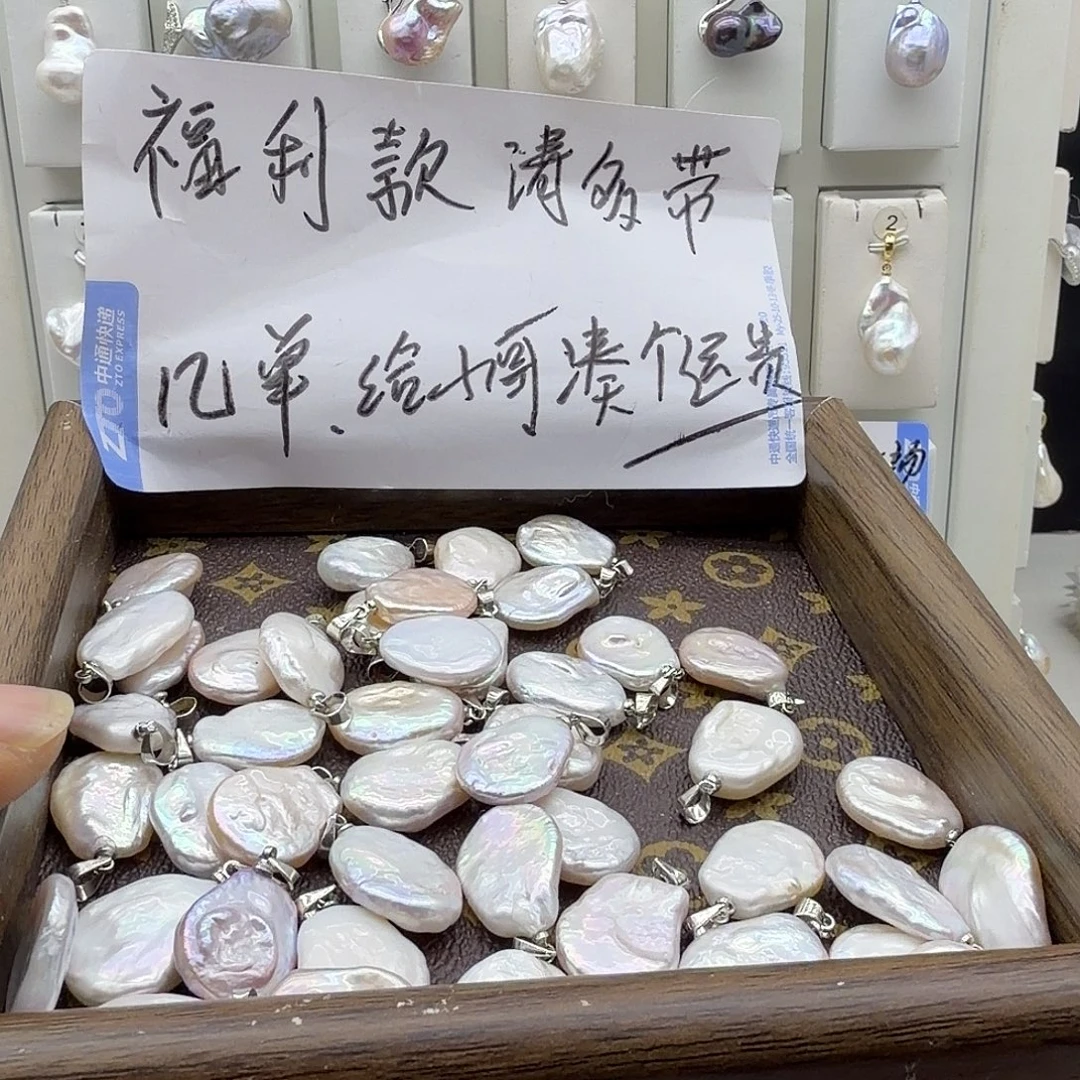 福利款 请多带
几单.给小哥凑个运费
ZTO 中通快递
ZTO EXPRESS
2
场